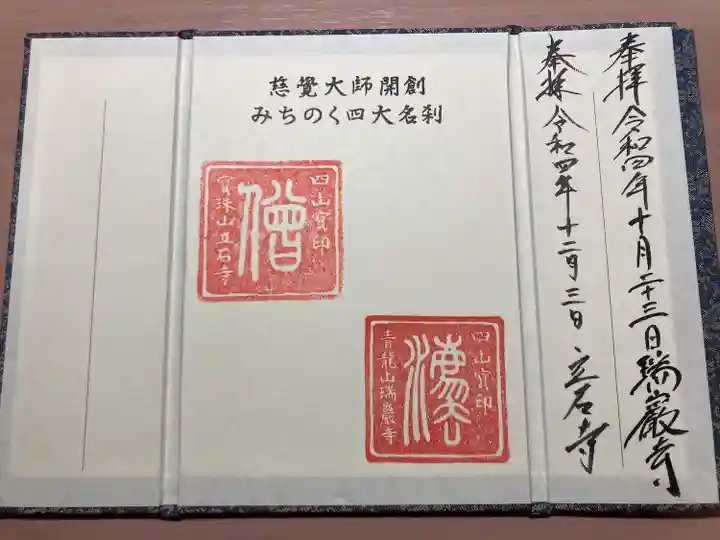 慈覺大師開創
みちのく四大名刹
奉拝 令和四年十月二十三日 瑞巖寺
奉拝 令和四年十二月三日 立石寺
四山寳印
僧
寳珠山立石寺
四山寳印
灋
青龍山瑞巖寺